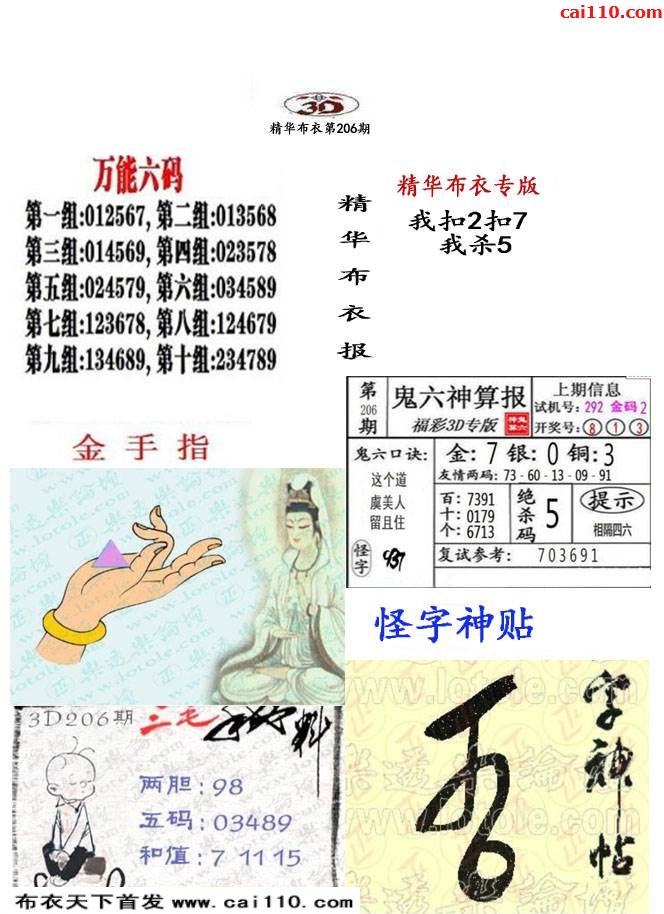 cai110.com
3D
精华布衣第206期
万能六码
第一组:012567, 第二组:013568
第三组:014569, 第四组:023578
第五组:024579, 第六组:034589
第七组:123678, 第八组:124679
第九组:134689, 第十组:234789
精华布衣报
精华布衣专版
我扣2扣7
我杀5
金手指
第206期
鬼六神算报
福彩3D专版
上期信息
试机号: 292 金码 2
开奖号: 8 1 3
鬼六口诀:
这个道
虞美人
留且住
怪字
金: 7 银: 0 铜: 3
友情两码: 73-60-13-09-91
百: 7391
十: 0179
个: 6713
绝杀码 5
提示
相隔四六
复试参考: 703691
怪字神贴
字神帖
www.lotole.com
3D206期 三毛
料
两胆: 98
五码: 03489
和值: 7 11 15
布衣天下首发 www.cai110.com